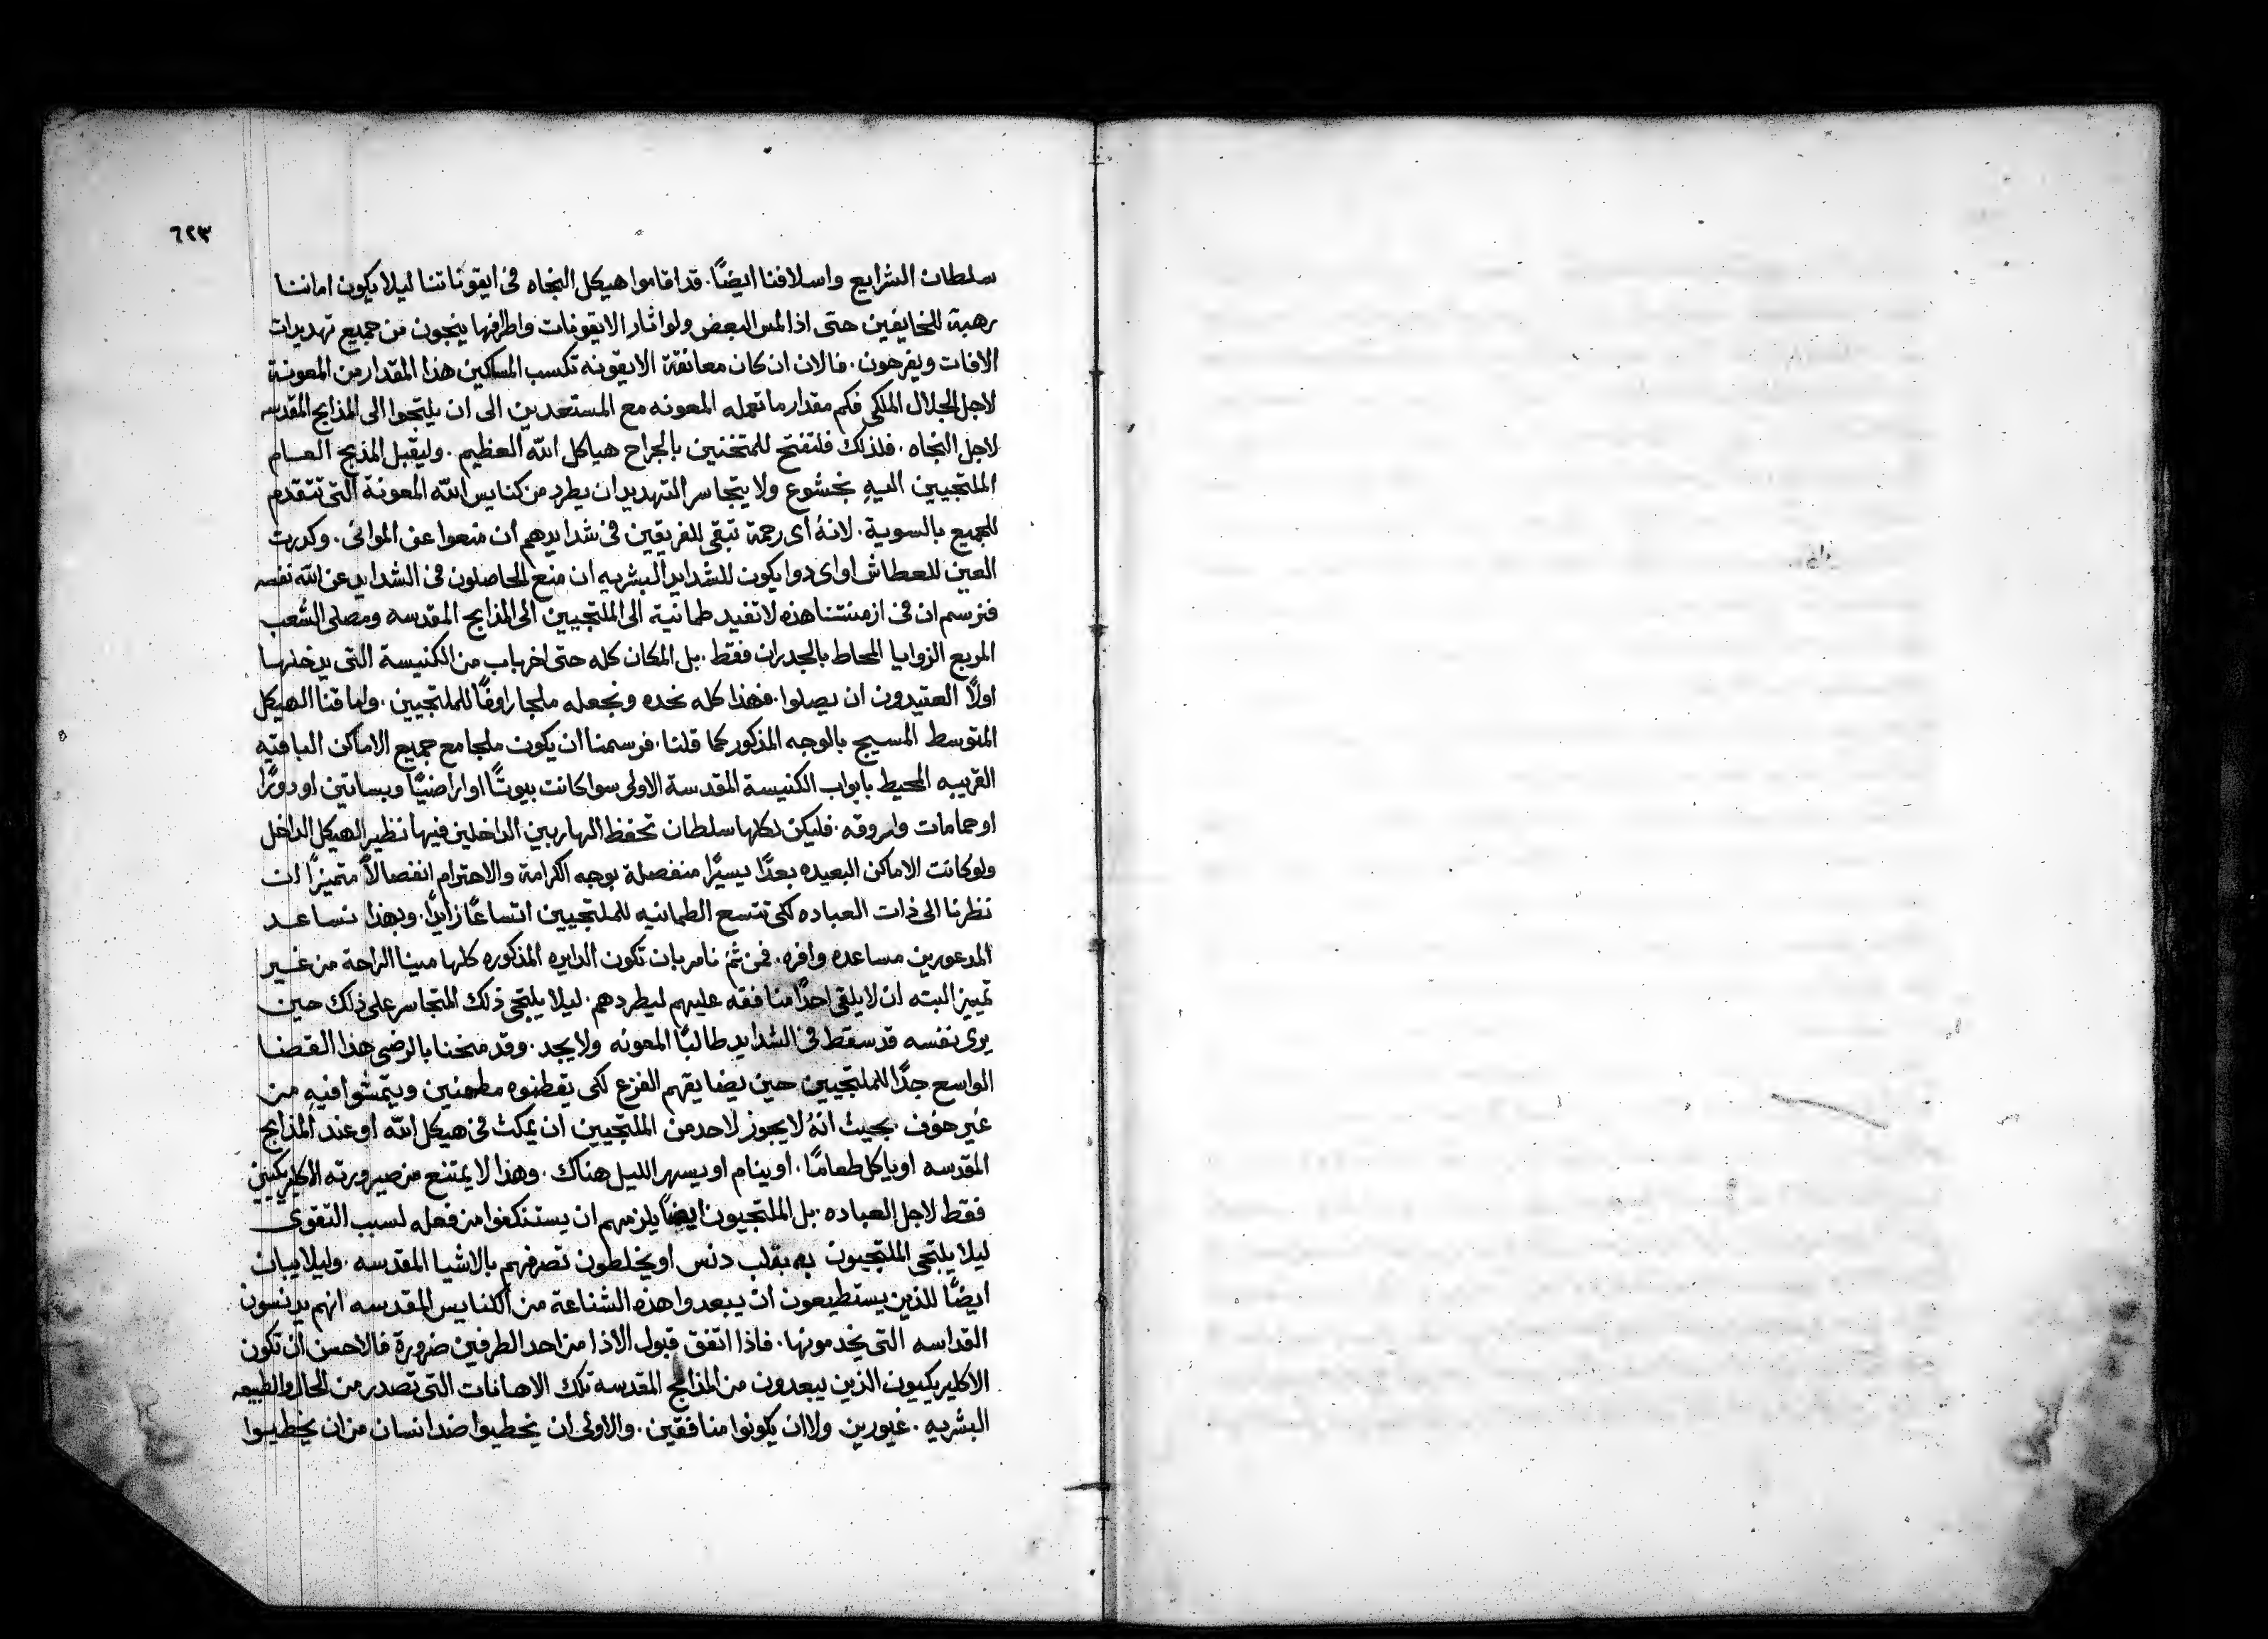 ٦٢٣
سلطان الشرايع واسلافنا ايضًا. قد اقاموا هيكل النجاه فى ايقوناتنا ليلا يكون اماننا
رهبة للخايفين حتى اذا لمس البعض ولو اثار الايقونات واطرافها ينجون من جميع تهديدات
الافات ويفرحون. فالان ان كان معانقة الايقونه تكسب المساكين هذا المقدار من المعونة
لاجل الجلال الملكى فكم مقدار ما تعمله المعونه مع المستعدين الى ان يلتجوا الى المذابح المقدسه
لاجل النجاه. فلذلك فلتفتح للمتخنين بالجراح هياكل الله العظيم. وليقبل المذبح العام
الملتجيين اليهِ بخشوع ولا يتجاسر التهديد ان يطرد من كنايس الله المعونة التى تتقدم
للجميع بالسوية. لانهُ اى رحمة تبقى للغريقين فى شدايدهم ان منعوا عن الموانى. وكدرت
العين للعطاش او اى دوا يكون للشدايد البشريه ان منع الحاصلون فى الشدايد عن الله نفسه
فنرسم ان فى ازمنتنا هذه لا تفيد طمانية الى الملتجيين الى المذابح المقدسه ومصلى الشعب
المربع الزوايا المحاط بالجدران فقط. بل المكان كله حتى اخر باب من الكنيسة التى يدخلها
اولًا العتيدون ان يصلوا. فهذا كله نحده ونجعله ملجا راوفًا للملتجيين. واما قنا الهيكل
المتوسط المسيج بالوجه المذكور كما قلنا. فرسمنا ان يكون ملجا مع جميع الاماكن الباقيه
القريبه المحيط بابواب الكنيسة المقدسة الاولى سوا كانت بيوتًا او اراضيًا وبساتين او دورًا
او حمامات واروقه. فليكن لكلها سلطان تحفظ الهاربين الداخلين فيها نظير الهيكل الداخل
ولو كانت الاماكن البعيده بعدًا يسيرًا منفصلة بوجه الكرامة والاحترام انفصالًا متميزًا ان
نظرنا الى ذات العباده لكى تتسع الطمانيه للملتجيين اتساعًا زايدًا. وبهذا نساعد
المدعورين مساعده وافره. فمن ثم نامر بان تكون الدايره المذكوره كلها مينا الراحة من غير
تمييز البته ان لا يلقى احدًا منافقه عليهم ليطردهم. ليلا يلتجى ذلك المتجاسر على ذلك حين
يرى نفسه قد سقط فى الشدايد طالبًا المعونه ولا يجد. وقد منحنا بالرضى هذا القضا
الواسع جدًا للملتجيين حين يضايقهم الفزع لكى يقطنوه مطمنين ويتمشوا فيهِ من
غير خوف. بحيث انهُ لا يجوز لاحد من الملتجيين ان يمكث فى هيكل الله او عند المذابح
المقدسه او ياكل طعامًا. او ينام او يسهر الليل هناك. وهذا لا يمتنع من صيرورته الاكليريكيين
فقط لاجل العباده. بل الملتجيون ايضًا يلزمهم ان يستنكفوا من فعله لسبب التقوى
ليلا يلتجى الملتجيون به بقلب دنس او يخلطون تصرفهم بالاشيا المقدسه. وليلا يبان
ايضًا للذين يستطيعون ان يبعدوا هذه الشناعة من الكنايس المقدسه انهم يدنسون
القداسه التى يخدمونها. فاذا اتفق قبول الاذا من احد الطرفين ضرورة فالاحسن ان تكون
الاكليريكيون الذين يبعدون من المذابح المقدسة تلك الاهانات التى تصدر من الحال والطبيعه
البشريه. غيورين ولا ان يكونوا منافقين. والاولى ان يخطيوا ضد انسان من ان يخطيوا